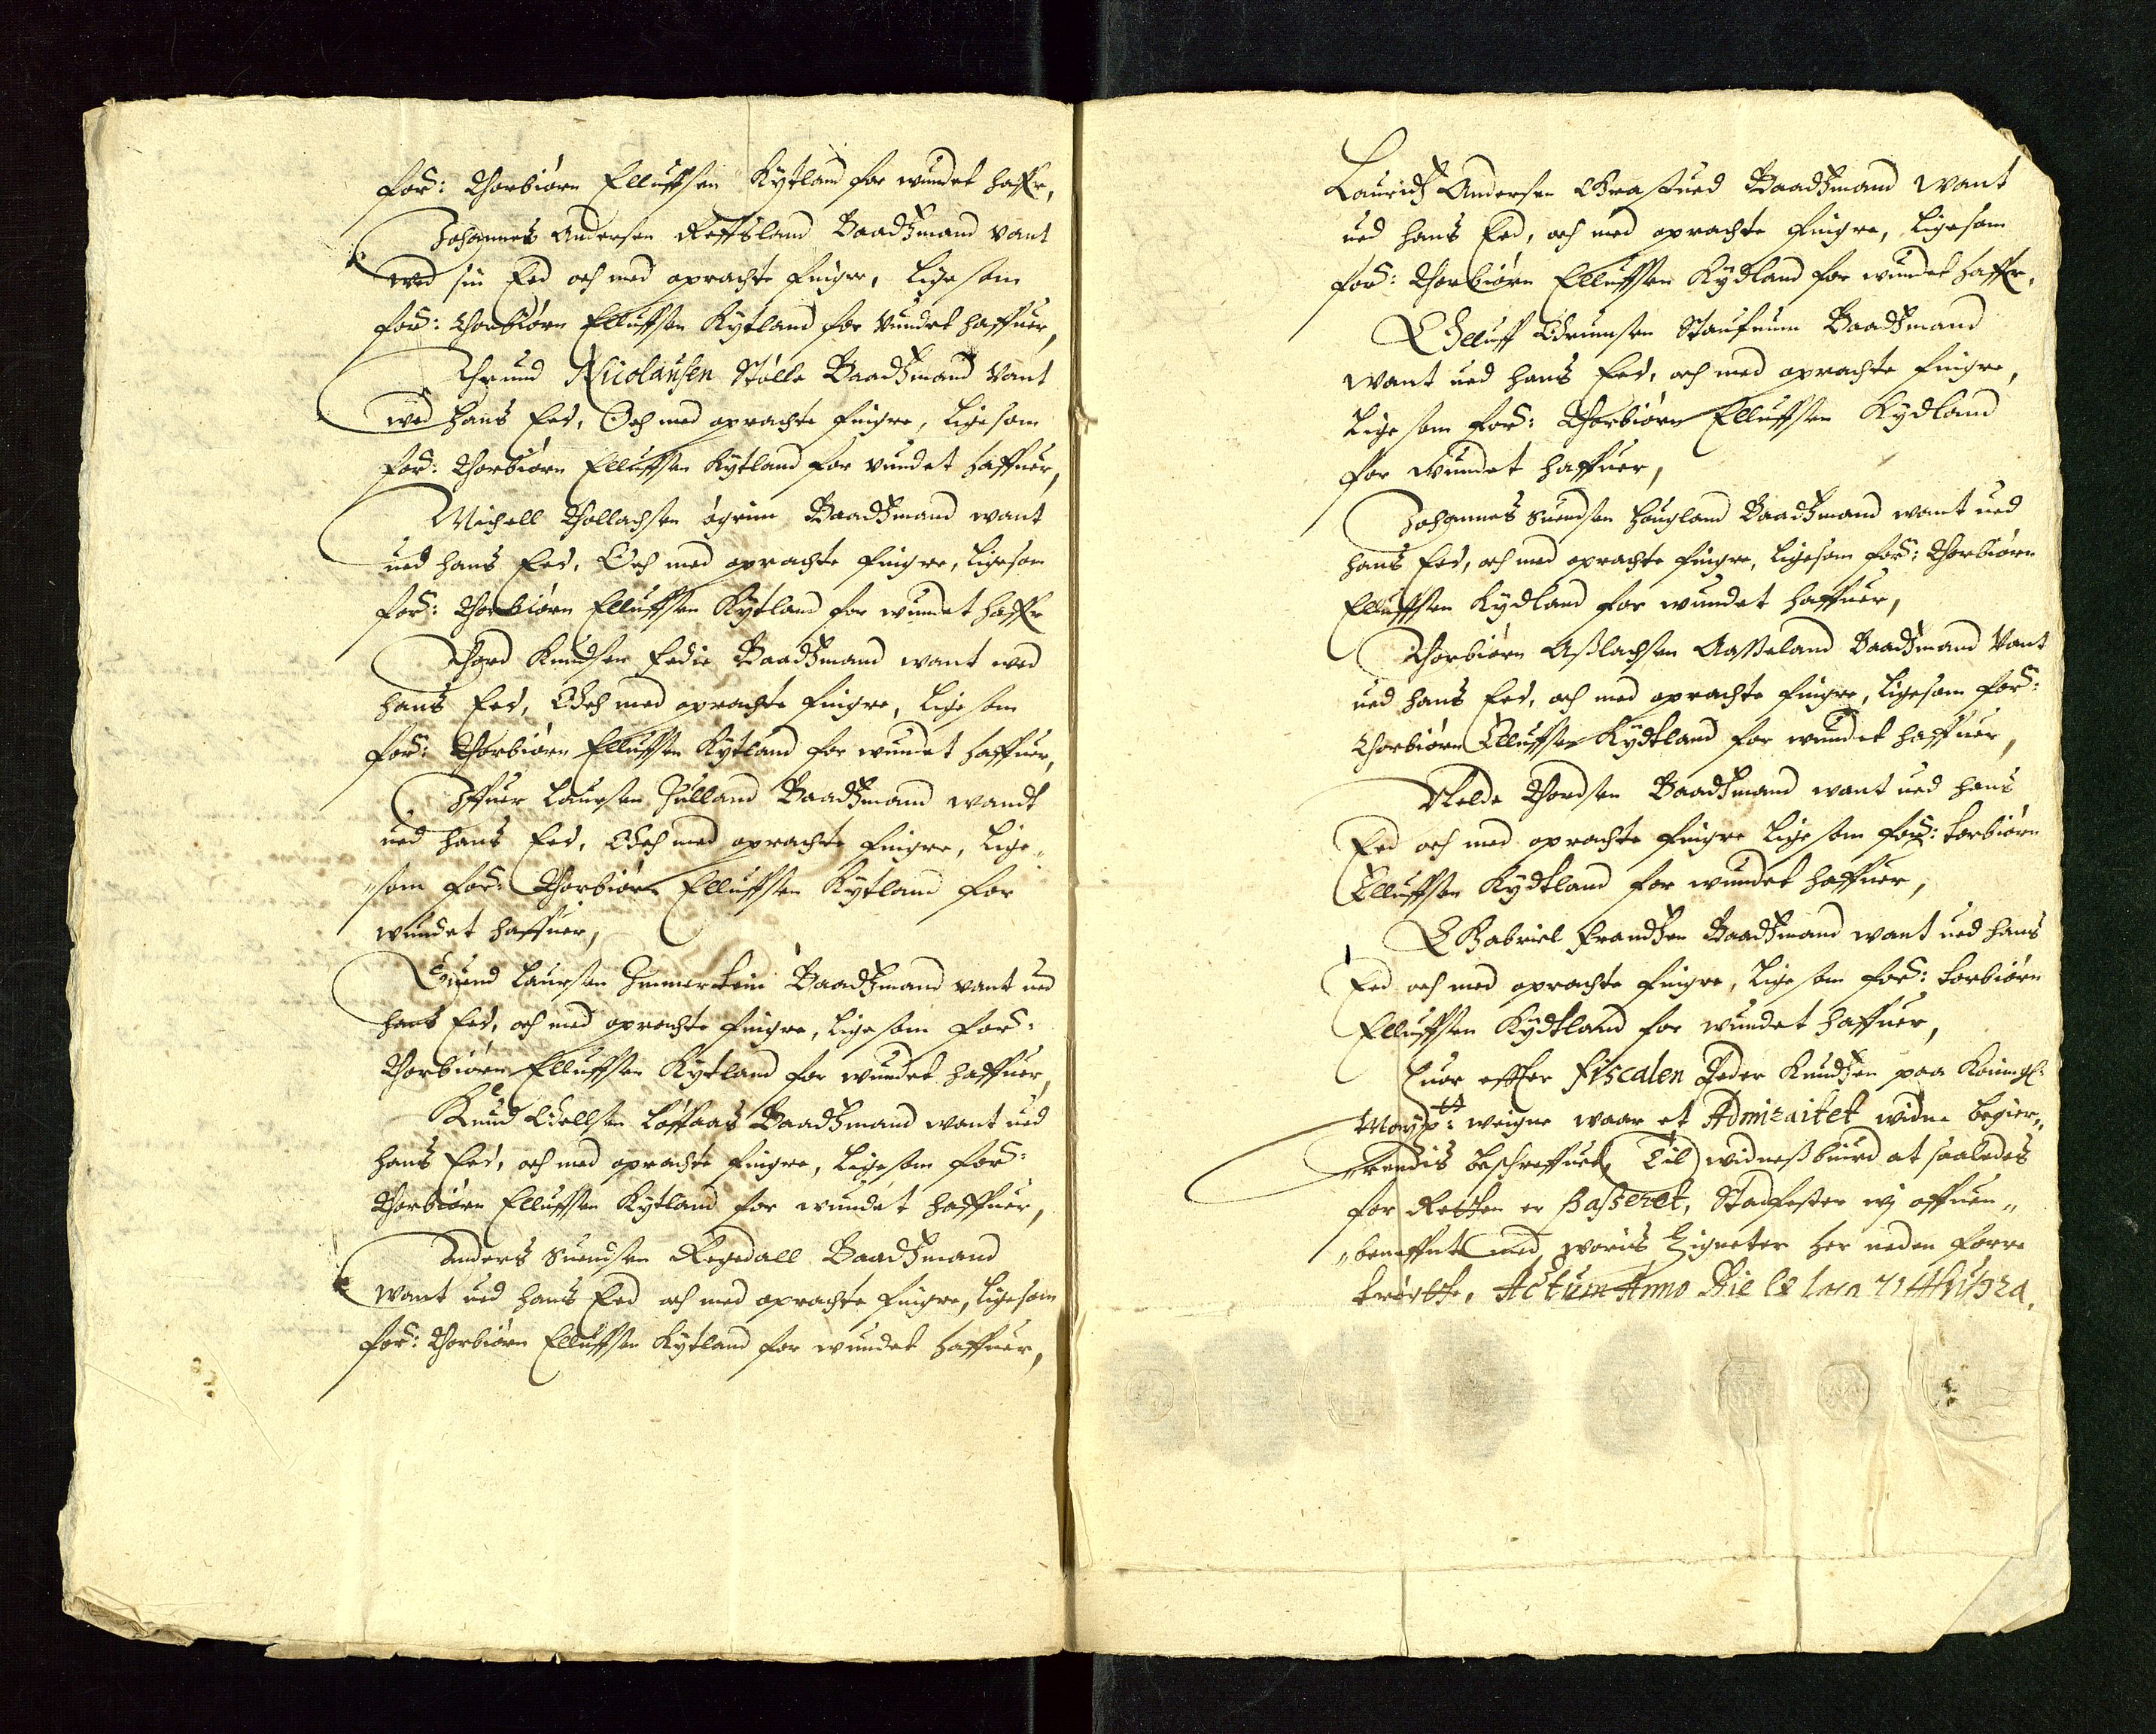 for: Thorbiørn Elluffsen Kytland for wundet haffr,
Johannes Andersen Reffsland Baadzmand vant
wed sin Eed och med oprachte fingre, lige som
for: Thorbiørn Elluffsen Kytland for vundet haffuer,
Thrund Nicolausen Stølle Baadzmand vant
wed hans Eed, Och med oprachte fingre, ligesom
for: Thorbiørn Elluffsen Kytland for vundet haffuer,
Michell Thollachsen øgrim Baadzmand want
ued hans Eed, Och med oprachte fingre, ligesom
for: Thorbiørn Elluffsen Kytland for wundet haffr
Thord Knudsen Eedie Baadzmand want wed
hans Eed, Och med oprachte fingre, lige som
for: Thorbiørn Elluffsen Kytland for wundet haffuer,
Iffuer Laursen Julland Baadzmand wandt
ued hans Eed, Och med oprachte fingre, lige„
„som for: Thorbiørn Elluffsen Kytland for
wundet haffuer,
Suend Laursen Immerstein Baadzmand vant ued
hans Eed, och med oprachte fingre, lige som for:
Thorbiørn Elluffsen Kytland for wundet haffuer,
Knud Oellsen Løffaas Baadzmand want ued
hans Eed, och med oprachte fingre, ligesom for:
Thorbiørn Elluffsen Kytland for wundet haffuer,
Anders Suendsen Regedall Baadzmand
want ued hans Eed och med oprachte fingre, ligesom
for: Thorbiørn Elluffsen Kytland for wundet haffuer,
Lauridz Andersen Baadzmand want
ued hans Eed, och med oprachte fingre, ligesom
for: Thorbiørn Elluffsen Kydland for wundet haffr,
Elluff Baadzmand
want ued hans Eed, och med oprachte fingre,
lige som for: Thorbiørn Elluffsen Kydland
for wundet haffuer,
Johannes Suendsen Hougland Baadzmand want ued
hans Eed, och med oprachte fingre, ligesom for: Thorbiørn
Elluffsen Kydland for wundet haffuer,
Thorbiørn Aslachsen Aasseland Baadzmand Vant
ued hans Eed, och med oprachte fingre, ligesom for:
Thorbiørn Elluffsen Kydtland for wundet haffuer,
Thordsen Baadzmand want ued hans
Eed och med oprachte fingre lige som for: torbiørn
Elluffsen Kydtland for wundet haffuer,
Gabriel Frandzen Baadzmand want ued hans
Eed och med oprachte fingre, lige som for: torbiørn
Elluffsen Kydtland for wundet haffuer,
huor effter Fiscalen Peder Knudzen paa Koningl:
May:tt weigne waar et Admiraitet widne begier„
„rendis beschreffuet, Til widnessbiurd at saaledes
for Retten er Passeret, Stadfester wj offuen„
„beneffnte med, woris Zigneter her neden forre
trøckte, Actum Anno Die Loco Ut Supra.